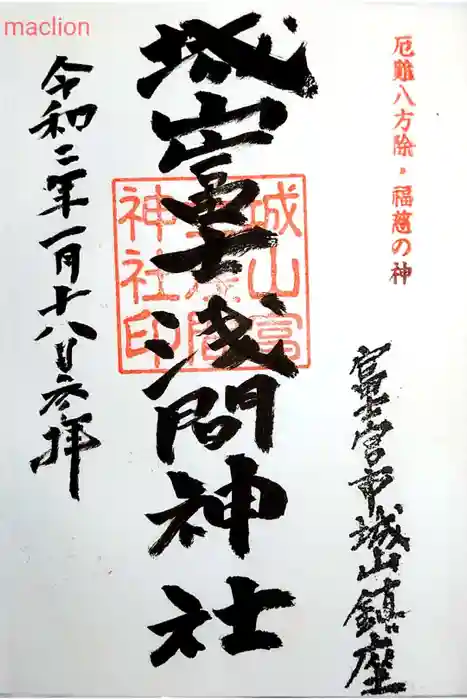 maclion
厄難八方除・福慈の神
富士宮市城山鎮座
城山富士浅間神社
令和二年一月十八日参拝